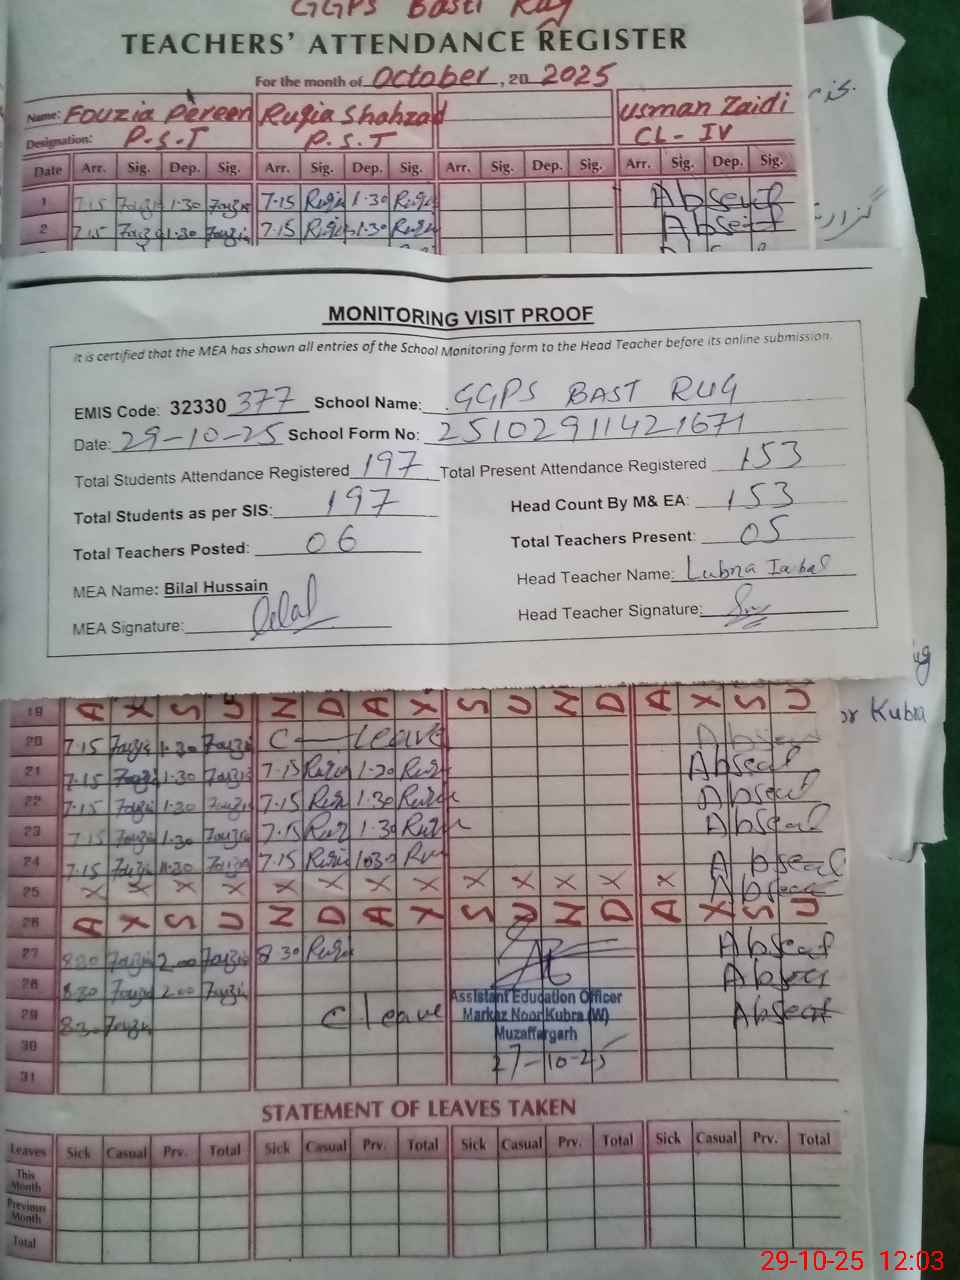 GGPS Basti Rug
TEACHERS' ATTENDANCE REGISTER
For the month of October, 20 2025
Name: Fouzia Pereen Ruqia Shahzad Usman Zaidi
Designation: P.S.T P.S.T CL-IV
Date Arr. Sig. Dep. Sig. Arr. Sig. Dep. Sig. Arr. Sig. Dep. Sig. Arr. Sig. Dep. Sig.
1 7.15 Fouzia 1.30 Fouzia 7.15 Ruqia 1.30 Ruqia Absent
2 7.15 Fouzia 1.30 Fouzia 7.15 Ruqia 1.30 Ruqia Absent
MONITORING VISIT PROOF
It is certified that the MEA has shown all entries of the School Monitoring form to the Head Teacher before its online submission.
EMIS Code: 32330 377 School Name: GGPS BAST RUG
Date: 29-10-25 School Form No: 25102911421671
Total Students Attendance Registered 197 Total Present Attendance Registered 153
Total Students as per SIS: 197 Head Count By M& EA: 153
Total Teachers Posted: 06 Total Teachers Present: 05
MEA Name: Bilal Hussain Head Teacher Name: Lubna Iqbal
MEA Signature: Bilal Head Teacher Signature:
or Kubra
19 A X S U N D A X S U N D A X S U
20 7.15 Fouzia 1.30 Fouzia C Leave Absent
21 7.15 Fouzia 1.30 Fouzia 7.15 Ruqia 1.30 Ruqia Absent
22 7.15 Fouzia 1.30 Fouzia 7.15 Ruqia 1.30 Ruqia Absent
23 7.15 Fouzia 1.30 Fouzia 7.15 Ruqia 1.30 Ruqia Absent
24 7.15 Fouzia 11.30 Fouzia 7.15 Ruqia 1030 Ruq Absent
25 X X X X X X X X X X X X X Absent
26 A X S U N D A X S U N D A X S U
27 8.30 Fouzia 2.00 Fouzia 8.30 Ruqia Absent
28 8.30 Fouzia 2.00 Fouzia Absent
29 8.30 Fouzia C Leave Absent
Assistant Education Officer
Markaz Noor Kubra (W)
Muzaffargarh
27-10-25
30
31
STATEMENT OF LEAVES TAKEN
Leaves Sick Casual Prv. Total Sick Casual Prv. Total Sick Casual Prv. Total Sick Casual Prv. Total
This Month
Previous Month
Total
29-10-25 12:03